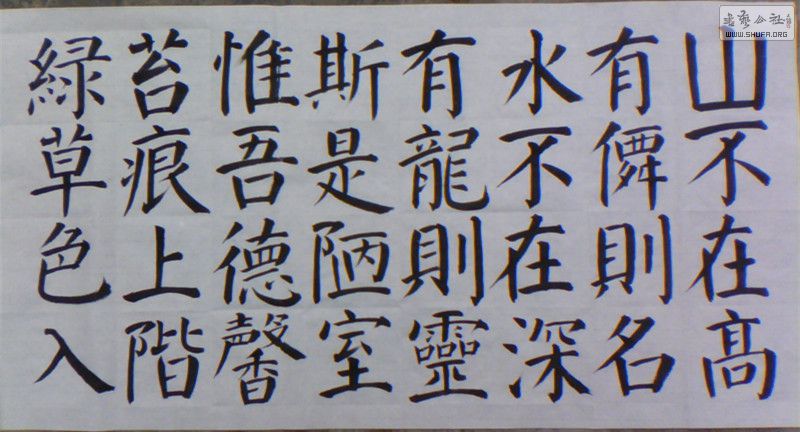 山不在高
有僊則名
水不在深
有龍則靈
斯是陋室
惟吾德馨
苔痕上階
緑草色入
WWW.SHUFA.ORG